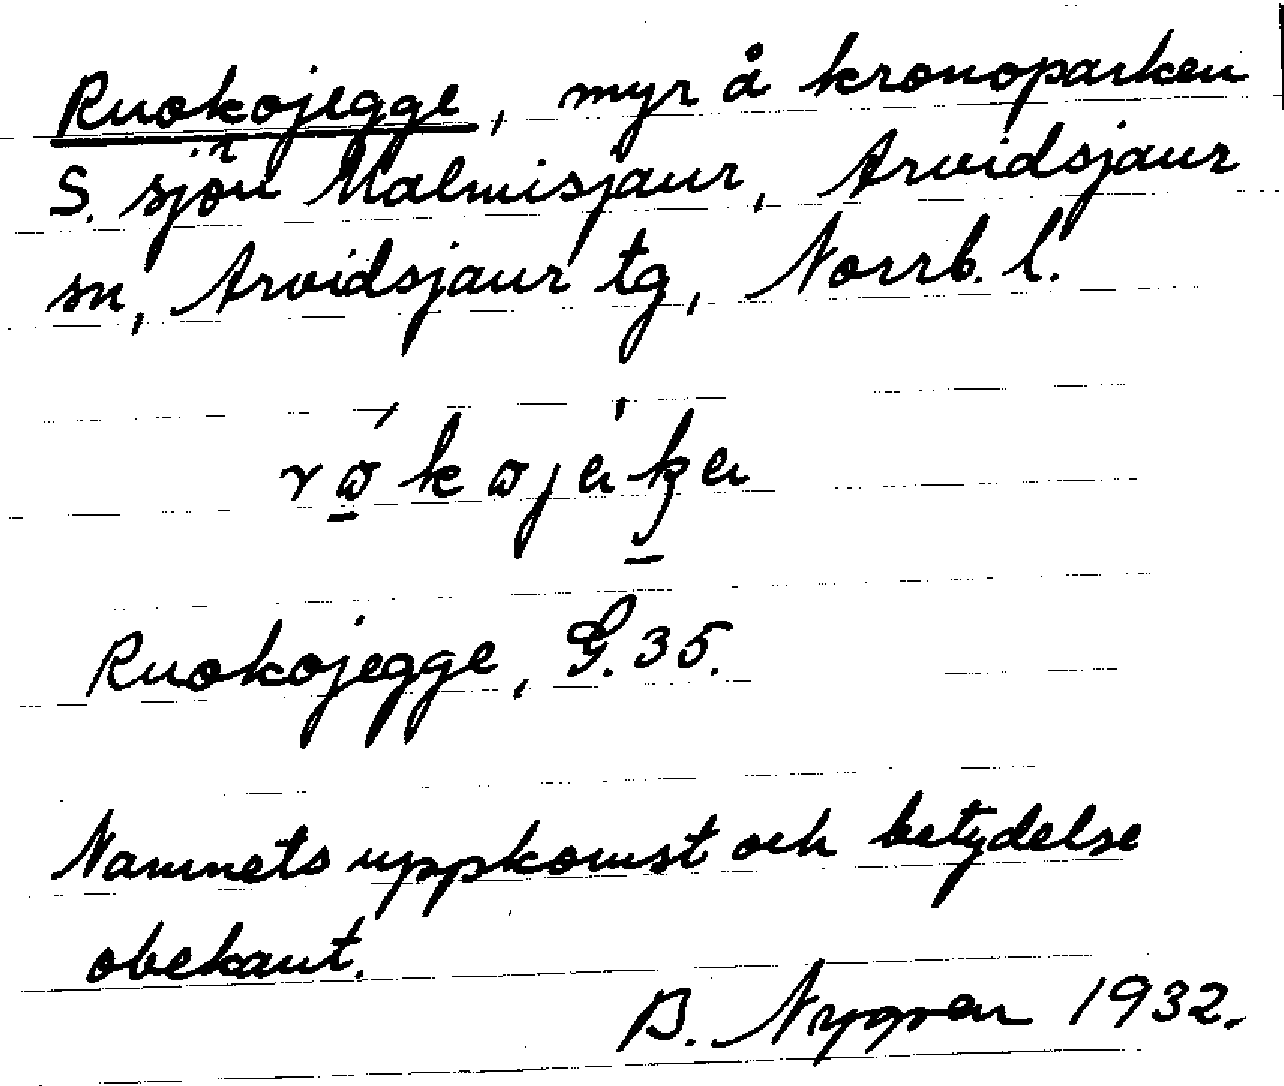 Ruokojegge, myr å kronoparken
S. sjön Malmisjaur, Arvidsjaur
sn, Arvidsjaur tg, Norrb. l.
Ruokojegge, G. 35.
Namnets uppkomst och betydelse
obekant.
B. Nygren 1932.